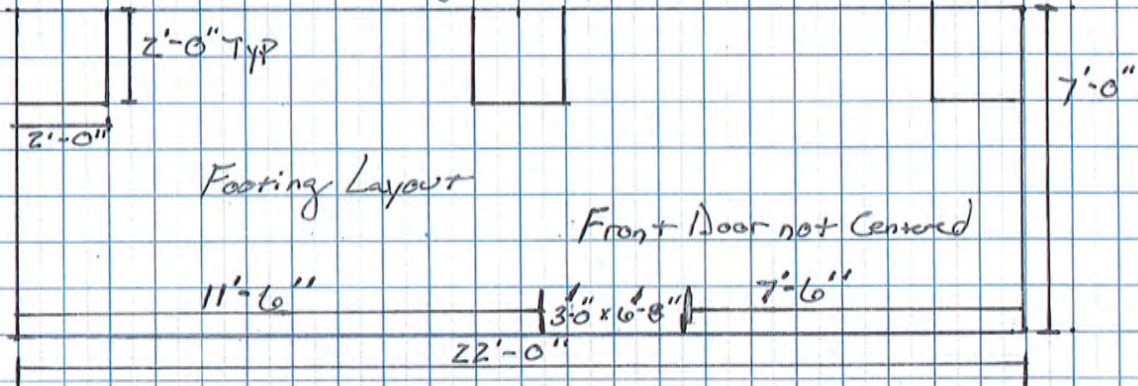 2'-0" Typ
7'-0"
2'-0"
Footing Layout
Front Door not Centered
11'-6"
3'-0" x 6'-8"
7'-6"
22'-0"